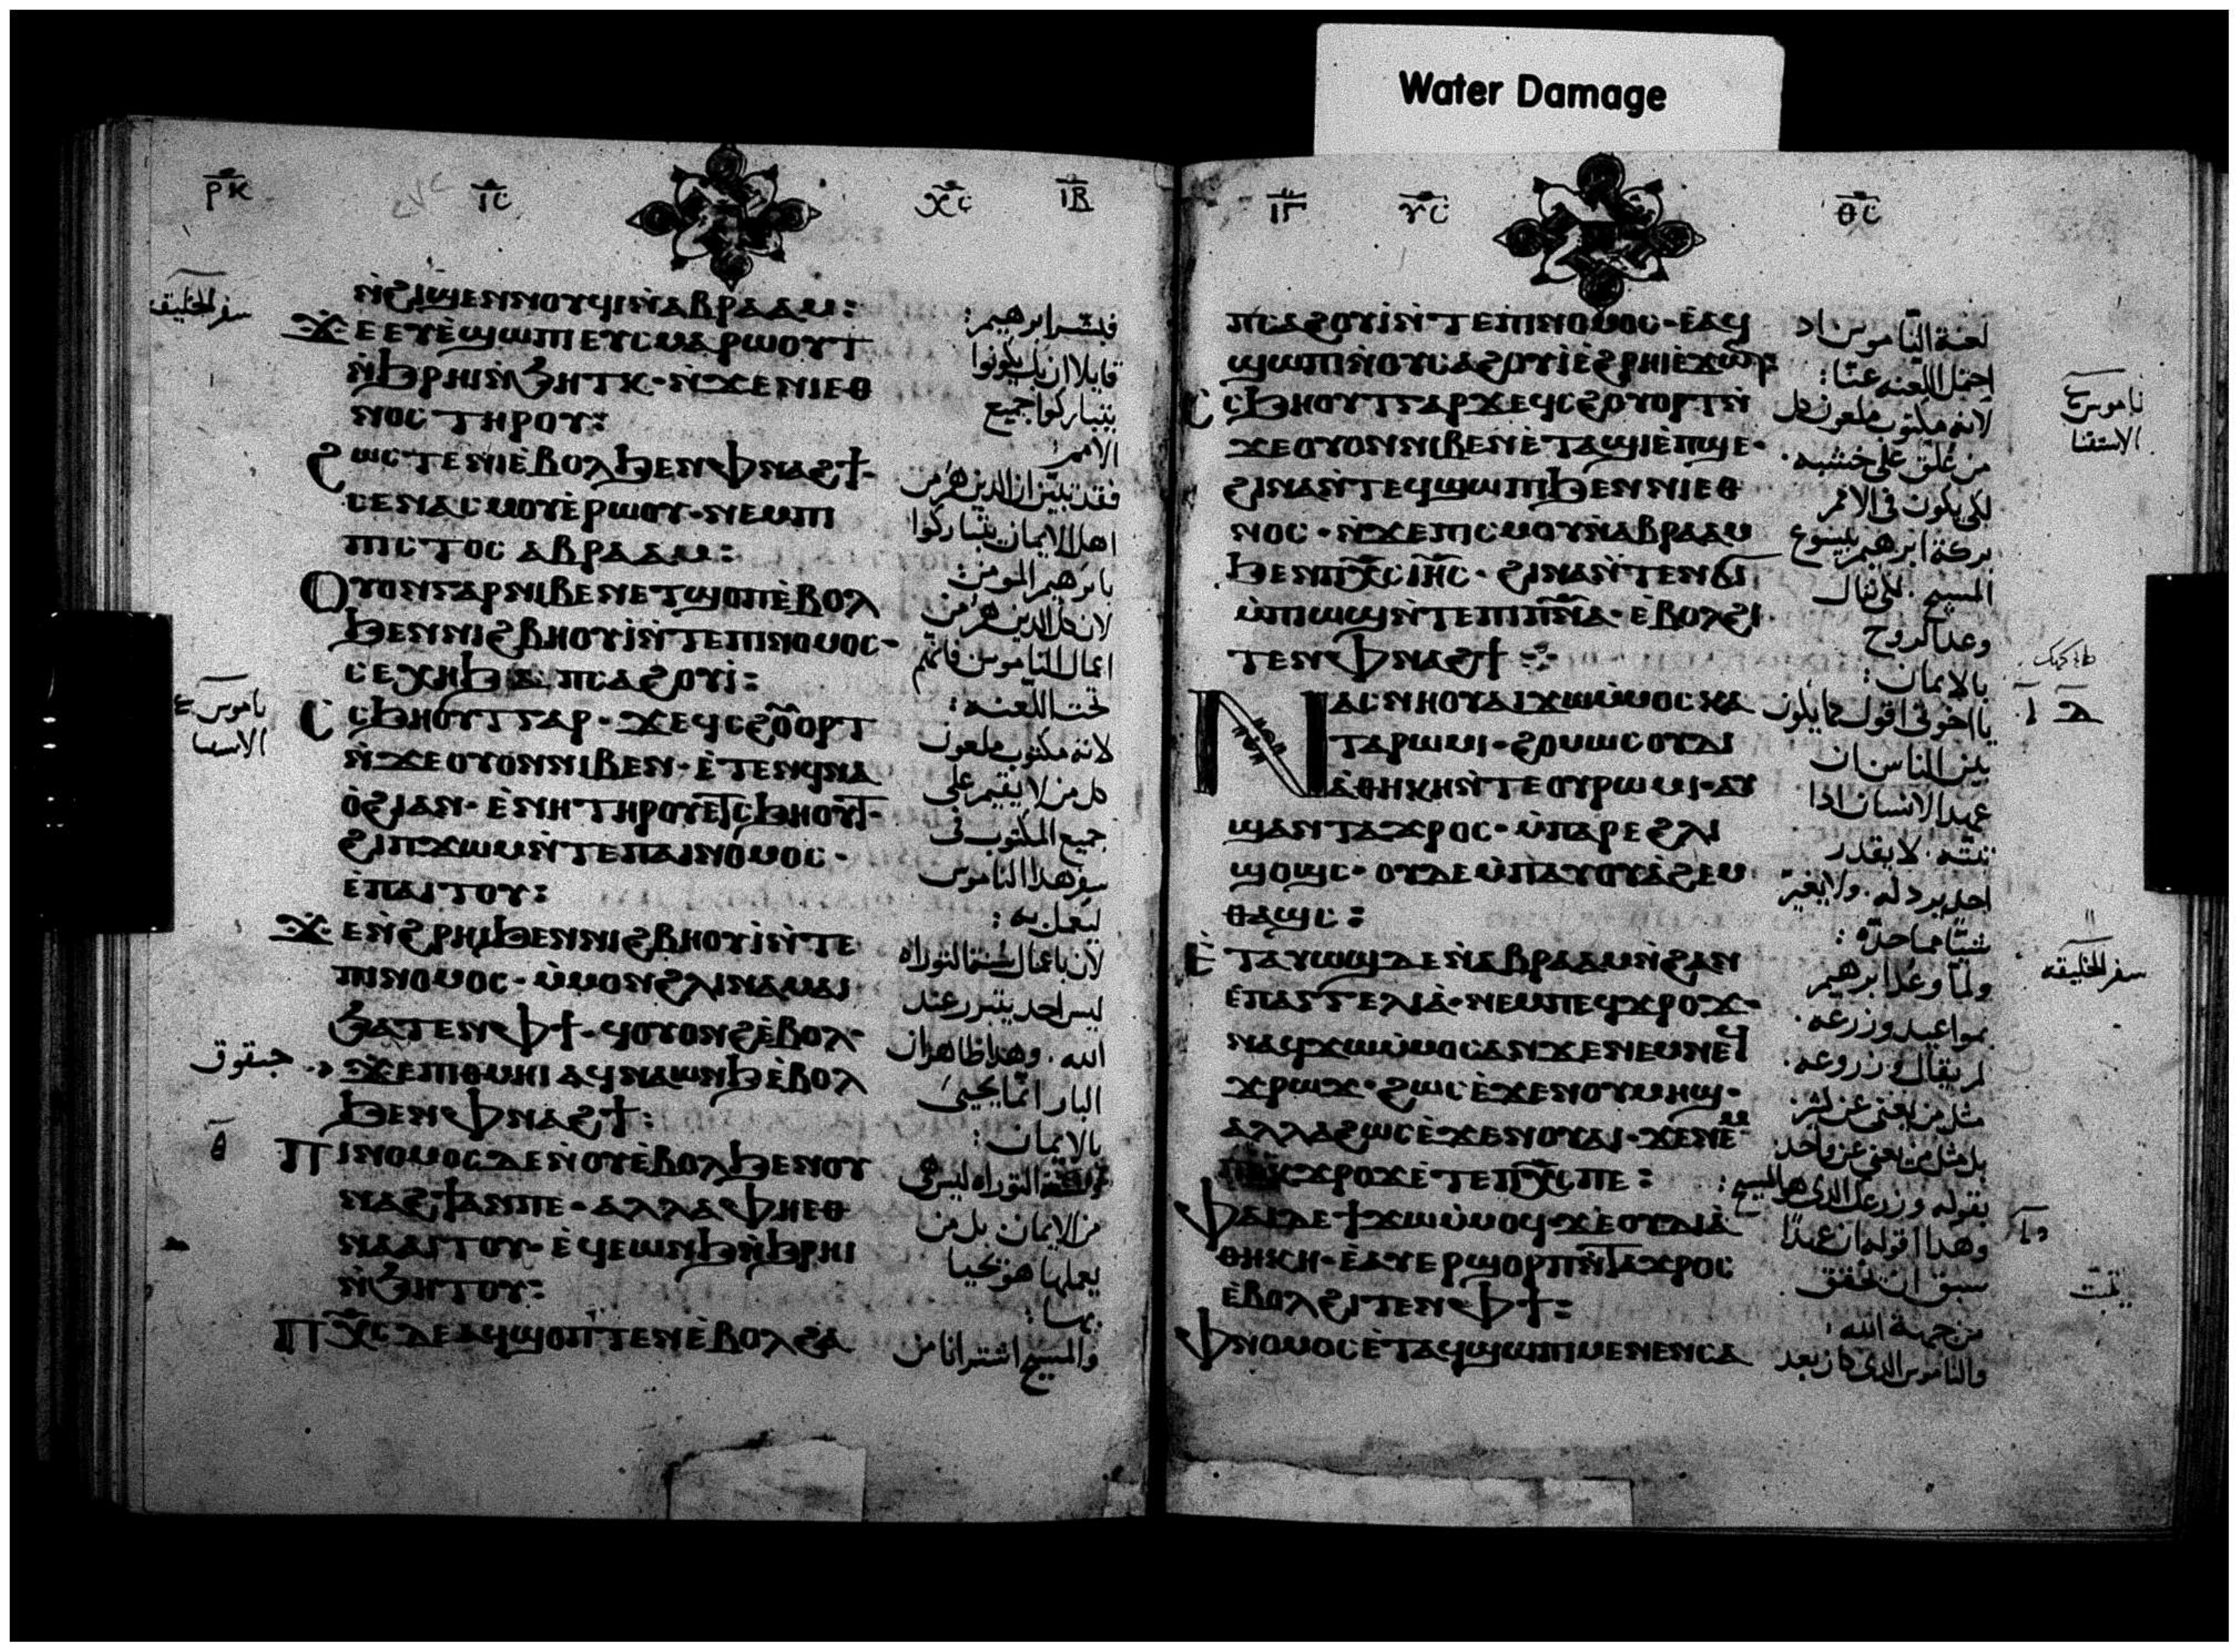 Water Damage
ⲣⲕ ⲓⲥ ⲭⲥ ⲓⲃ
ⲛ̀ϩⲓϣⲉⲛⲛⲟⲩϥⲓⲛ̀ⲁⲃⲣⲁⲁⲙ:
ϫⲉⲉⲩⲉ̀ϣⲱⲡⲓⲉⲩⲥⲙⲁⲣⲱⲟⲩⲧ
ⲛ̀ϧⲣⲏⲓⲛ̀ϧⲏⲧⲕ · ⲛ̀ϫⲉⲛⲓⲉⲑ
ⲛⲟⲥ ⲧⲏⲣⲟⲩ:
ϩⲱⲥⲧⲉⲛⲓⲉ̀ⲃⲟⲗϧⲉⲛⲫⲛⲁϩϯ ·
ⲥⲉⲛⲁⲥⲙⲟⲩⲉ̀ⲣⲱⲟⲩ · ⲛⲉⲙⲡⲓ
ⲡⲓⲥⲧⲟⲥ ⲁⲃⲣⲁⲁⲙ:
ⲟⲩⲟⲛⲅⲁⲣⲛⲓⲃⲉⲛⲉⲧϣⲟⲡⲉ̀ⲃⲟⲗ
ϧⲉⲛⲛⲓϩⲃⲏⲟⲩⲓ̀ⲛ̀ⲧⲉⲡⲓⲛⲟⲙⲟⲥ ·
ⲥⲉⲭⲏϧⲁ ⲡⲥⲁϩⲟⲩⲓ̀:
ⲥϧⲏⲟⲩⲧⲅⲁⲣ · ϫⲉϥⲥϩⲟ̅ⲟⲣⲧ
ⲛ̀ϫⲉⲟⲩⲟⲛⲛⲓⲃⲉⲛ · ⲉ̀ⲧⲉⲛϥⲛⲁ
ⲟ̀ϩⲓⲁⲛ · ⲉ̀ⲛⲏⲧⲏⲣⲟⲩⲉⲧⲥϧⲏⲟⲩⲧ ·
ϩⲓⲡϫⲱⲙⲛ̀ⲧⲉⲡⲁⲓⲛⲟⲙⲟⲥ ·
ⲉ̀ⲡⲁⲓⲧⲟⲩ:
ϫⲉⲛ̀ϩⲣⲏⲓϧⲉⲛⲛⲓϩⲃⲏⲟⲩⲓ̀ⲛ̀ⲧⲉ
ⲡⲓⲛⲟⲙⲟⲥ · ⲙ̀ⲙⲟⲛϩⲗⲓⲛⲁⲙⲁⲓ
ϧⲁⲧⲉⲛⲫϯ · ϥⲟⲩⲟⲛϩⲉ̀ⲃⲟⲗ ·
ϫⲉⲡⲓⲑⲙⲏⲓ ⲁϥⲛⲁⲱⲛϧⲉ̀ⲃⲟⲗ
ϧⲉⲛⲫⲛⲁϩϯ:
ⲡⲓⲛⲟⲙⲟⲥⲇⲉⲛ̀ⲟⲩⲉ̀ⲃⲟⲗϧⲉⲛⲟⲩ
ⲛⲁϩϯⲁⲛⲡⲉ · ⲁⲗⲗⲁⲫⲏⲉⲑ
ⲛⲁⲁⲓⲧⲟⲩ · ⲉ̀ϥⲉⲱⲛϧⲛ̀ϧⲣⲏⲓ
ⲛ̀ϧⲏⲧⲟⲩ:
ⲡⲭ̅ⲥⲇⲉⲁϥϣⲟⲡⲧⲉⲛⲉ̀ⲃⲟⲗϩⲁ
فبشر ابرهيم:
قايلا ان بك يكونوا
يتباركوا جميع
الامم:
فقد تبين ان الذين هم من
اهل الايمان يتباركوا
بابرهيم المومن:
لان كل الذين هم من
اعمال الناموس فانهم
تحت اللعنه:
لانه مكتوب ملعون
كل من لا يقيم على
جميع المكتوب فى
سفر هذا الناموس
ليعمل به:
ليس احد يتبرر عند
الله. وهذا ظاهر ان
البار انما يحيى
بالايمان:
من الايمان بل من
يعملها هو يحيا
بها:
والمسيح اشترانا من
سفر الخليقه
ناموس
الاستثنا
حبقوق
ⲑ
ⲓⲅ ⲩⲥ ⲑⲥ
ⲡⲥⲁϩⲟⲩⲓ̀ⲛ̀ⲧⲉⲡⲓⲛⲟⲙⲟⲥ · ⲉ̀ⲁϥ
ϣⲱⲡⲓⲛ̀ⲟⲩⲥⲁϩⲟⲩⲓ̀ⲉ̀ϩⲣⲏⲓⲉ̀ϫⲱⲛ:
ⲥϧⲏⲟⲩⲧⲅⲁⲣϫⲉϥⲥϩⲟⲩⲟⲣⲧⲛ̀
ϫⲉⲟⲩⲟⲛⲛⲓⲃⲉⲛⲉ̀ⲧⲁϣⲓⲉ̀ⲡϣⲉ ·
ϩⲓⲛⲁⲛ̀ⲧⲉϥϣⲱⲡⲓϧⲉⲛⲛⲓⲉⲑ
ⲛⲟⲥ · ⲛ̀ϫⲉⲡⲓⲥⲙⲟⲩⲛ̀ⲁⲃⲣⲁⲁⲙ
ϧⲉⲛⲡⲭ̅ⲥⲓⲏ̅ⲥ · ϩⲓⲛⲁⲛ̀ⲧⲉⲛϭⲓ
ⲙ̀ⲡⲓⲱϣⲛ̀ⲧⲉⲡⲓⲡ̅ⲛ̅ⲁ · ⲉ̀ⲃⲟⲗϩⲓ
ⲧⲉⲛⲫⲛⲁϩϯ
ⲛⲁⲥⲛⲏⲟⲩⲁⲓϫⲱⲙ̀ⲙⲟⲥⲕⲁ
ⲧⲁⲣⲱⲙⲓ · ϩⲟⲙⲱⲥⲟⲩⲇⲓ
ⲁ̀ⲑⲏⲕⲏⲛ̀ⲧⲉⲟⲩⲣⲱⲙⲓ · ⲁⲩ
ϣⲁⲛⲧⲁϫⲣⲟⲥ · ⲙ̀ⲡⲁⲣⲉϩⲗⲓ
ϣⲟϣⲥ · ⲟⲩⲇⲉⲙ̀ⲡⲁⲩⲟⲩⲁ̀ϩⲉⲙ
ⲑⲁϣⲥ:
ⲉ̀ⲧⲁⲩⲱϣⲇⲉⲛ̀ⲁⲃⲣⲁⲁⲙⲛ̀ϩⲁⲛ
ⲉ̀ⲡⲁⲅⲅⲉⲗⲓⲁ̀ · ⲛⲉⲙⲡⲉϥϫⲣⲟϫ ·
ⲛⲁϥϫⲱⲙ̀ⲙⲟⲥⲁⲛϫⲉⲛⲉⲙⲛⲉϥ
ϫⲣⲱϫ · ϩⲱⲥⲉ̀ϫⲉⲛⲟⲩⲙⲏϣ ·
ⲁⲗⲗⲁϩⲱⲥⲉ̀ϫⲉⲛⲟⲩⲁⲓ · ϫⲉⲛⲉⲙ
ⲡⲉⲕϫⲣⲟϫⲉ̀ⲧⲉⲡⲭ̅ⲥⲡⲉ:
ⲫⲁⲓⲇⲉϯϫⲱⲙ̀ⲙⲟϥ · ϫⲉⲟⲩⲇⲓⲁ̀
ⲑⲏⲕⲏ · ⲉ̀ⲁⲩⲉⲣϣⲟⲣⲡⲛ̀ⲧⲁϫⲣⲟⲥ
ⲉ̀ⲃⲟⲗϩⲓⲧⲉⲛⲫϯ:
ⲫⲛⲟⲙⲟⲥⲉ̀ⲧⲁϥϣⲱⲡⲓⲙⲉⲛⲉⲛⲥⲁ
لعنة الناموس اذ
احتمل اللعنه عنا:
لانه مكتوب ملعون كل
من علق على خشبه.
لكى يكون فى الامم
بركة ابرهيم بيسوع
المسيح. لكى ننال
وعد الروح
بالايمان:
يا اخوتى اقول كما يكون
بين الناس ان
عهد الانسان اذا
ثبته. لا يقدر
احد يرذله. ولا يغير
شيئا مما حده:
ولما وعد ابرهيم
بمواعيد وزرعه.
لم يقال وزروعه.
بقوله وزرعك الذى هو المسيح:
وهذا اقوله ان عهدا
سبق ان تحقق
من جهة الله:
والناموس الذى كان بعد
ناموس
الاستثنا
سفر الخليقه
تمت